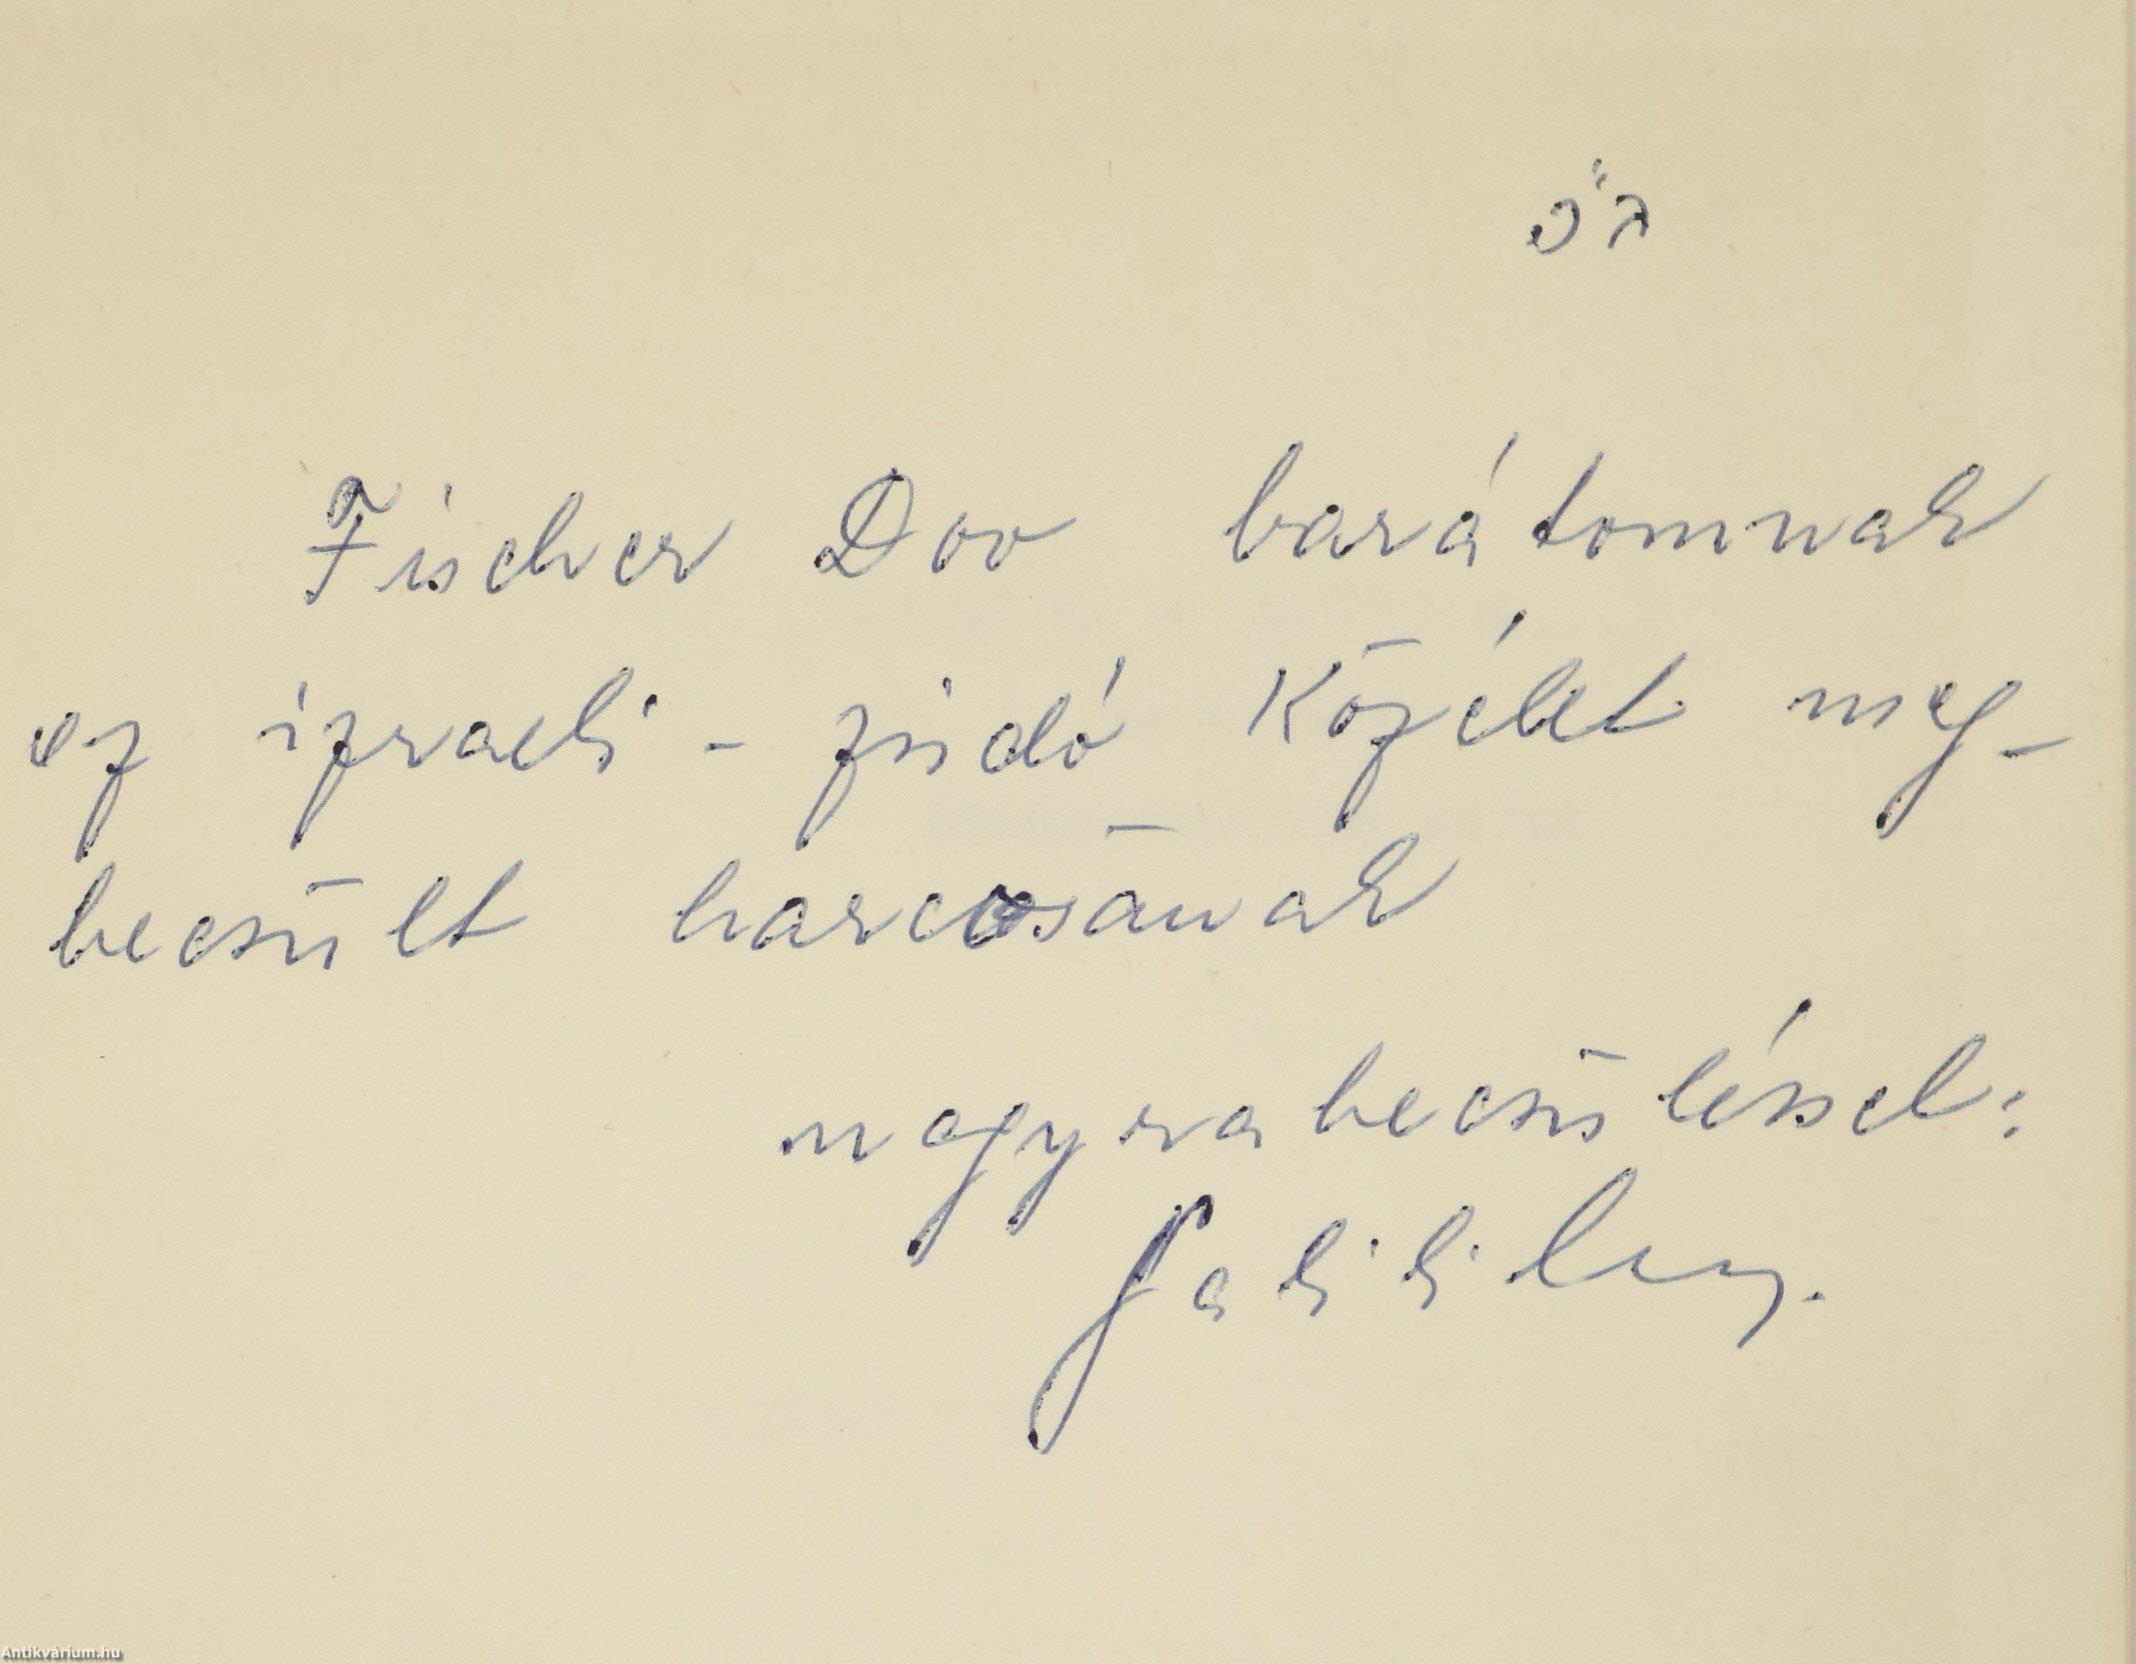 ב"ה
Fischer Dov barátomnak
az izraeli - zsidó Közélet meg-
becsült harcosának
nagyrabecsüléssel:
Galili
Antikvárium.hu